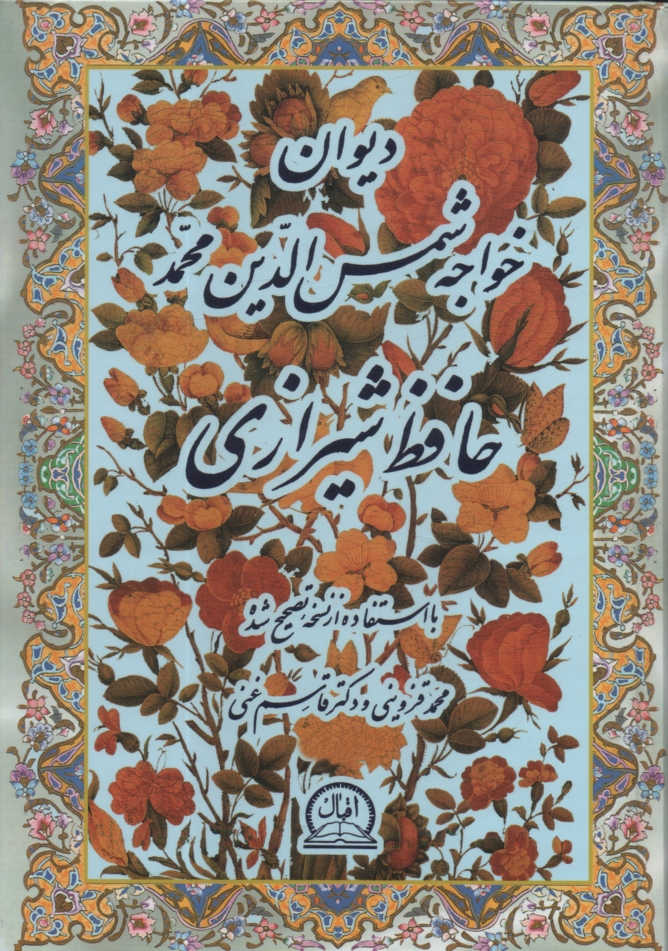 دیوان
خواجه شمس الدّین محمّد
حافظ شیرازی
با استفاده از نسخه تصحیح شده
محمد قزوینی و دکتر قاسم غنی
اقبال